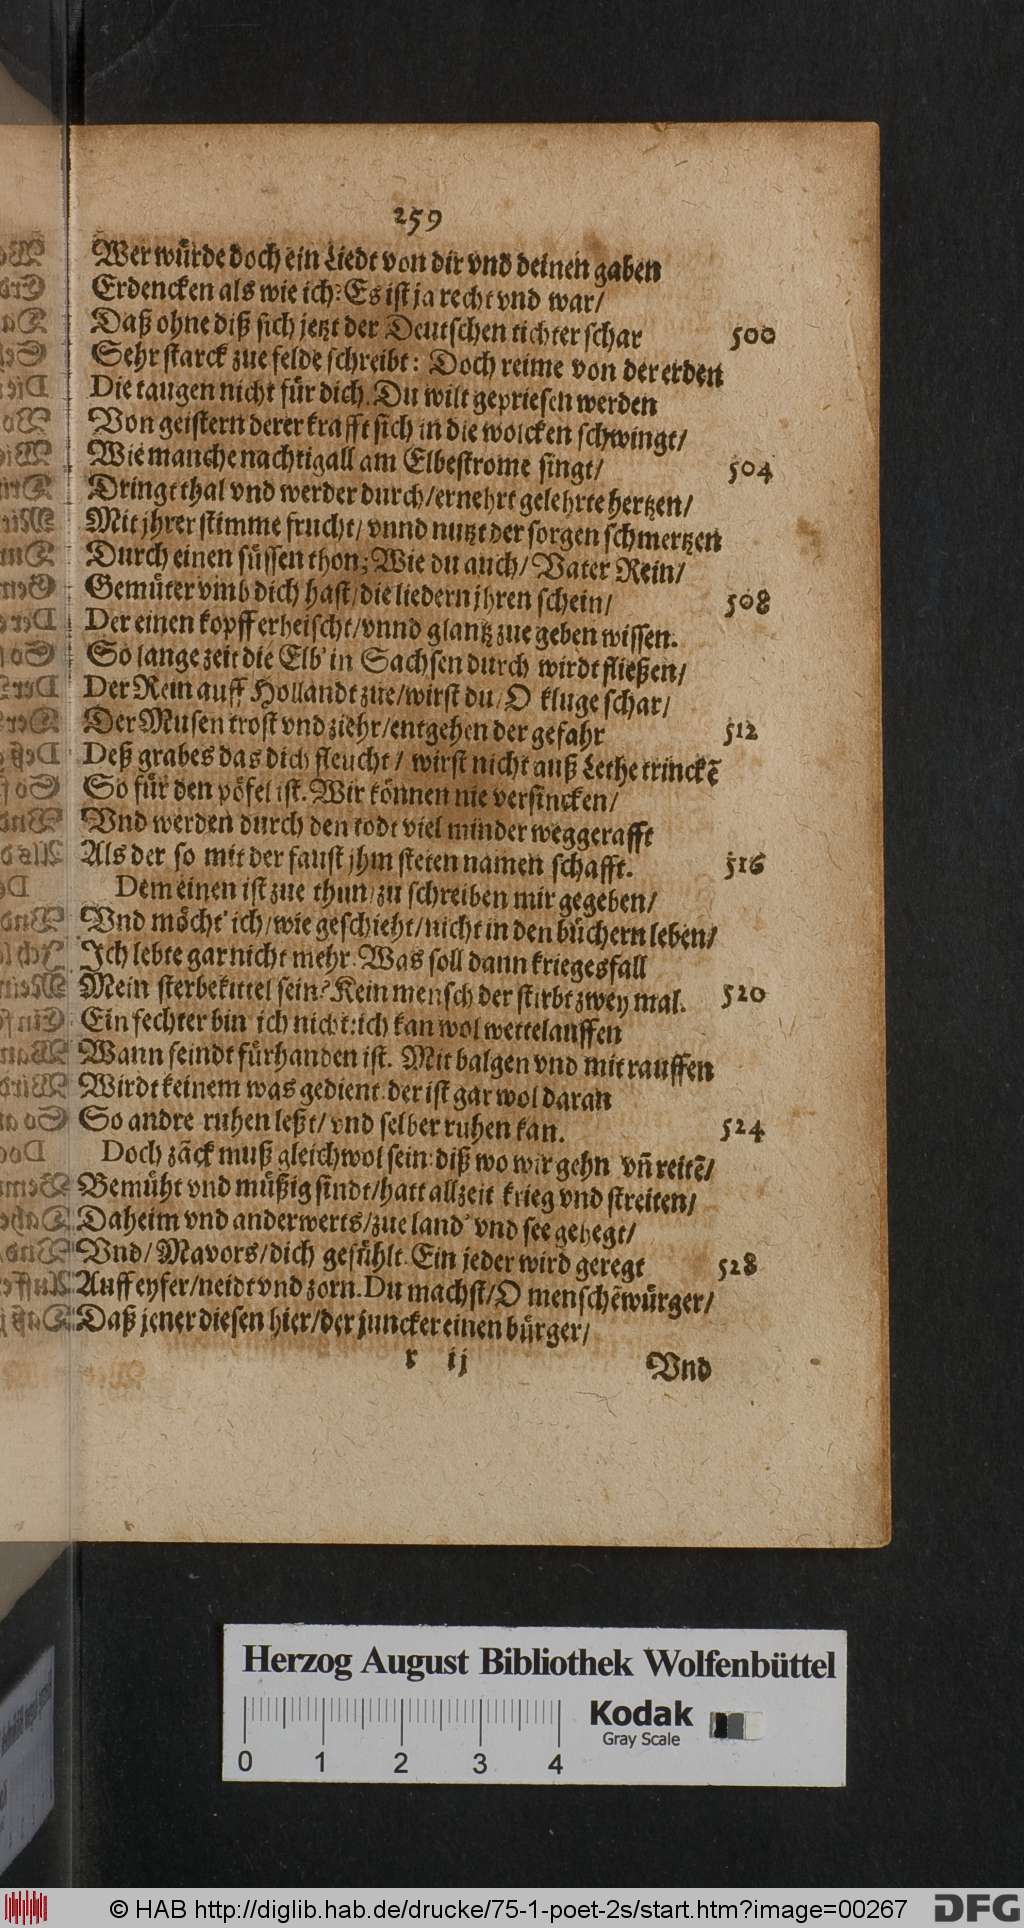 259
Wer würde doch ein Liedt von dir vnd deinen gaben
Erdencken als wie ich: Es ist ja recht vnd war/
Daß ohne diß sich jetzt der Deutschen tichter schar 500
Sehr starck zue felde schreibt: Doch reime von der erden
Die taugen nicht für dich. Du wilt gepriesen werden
Von geistern derer krafft sich in die wolcken schwingt/
Wie manche nachtigall am Elbestrome singt/ 504
Dringt thal vnd werder durch/ ernehrt gelehrte hertzen/
Mit jhrer stimme frucht/ vnnd nutzt der sorgen schmertzen
Durch einen süssen thon; Wie du auch/ Vater Rein/
Gemüter vmb dich hast/ die liedern jhren schein/ 508
Der einen kopff erheischt/ vnnd glantz zue geben wissen.
So lange zeit die Elb' in Sachsen durch wirdt fließen/
Der Rein auff Hollandt zue/ wirst du/ O kluge schar/
Der Musen trost vnd ziehr/ entgehen der gefahr 512
Deß grabes das dich fleucht/ wirst nicht auß Lethe trinckẽ
So für den pöfel ist. Wir können nie versincken/
Vnd werden durch den todt viel minder weggerafft
Als der so mit der faust jhm steten namen schafft. 516
Dem einen ist zue thun/ zu schreiben mir gegeben/
Vnd möcht' ich/ wie geschieht/ nicht in den büchern leben/
Ich lebte gar nicht mehr. Was soll dann kriegesfall
Mein sterbekittel sein? Kein mensch der stirbt zwey mal. 520
Ein fechter bin ich nicht: ich kan wol wettelauffen
Wann feindt fürhanden ist. Mit balgen vnd mit rauffen
Wirdt keinem was gedient: der ist gar wol daran
So andre ruhen leßt/ vnd selber ruhen kan. 524
Doch zäck muß gleichwol sein: diß wo wir gehn vñ reitẽ/
Bemüht vnd müßig sindt/ hatt allzeit krieg vnd streiten/
Daheim vnd anderwerts/ zue land' vnd see gehegt/
Vnd/ Mavors/ dich gefühlt. Ein jeder wird geregt 528
Auff eyfer/ neidt vnd zorn. Du machst/ O menschẽwürger/
Daß jener diesen hier/ der juncker einen bürger/
r ij Vnd
Herzog August Bibliothek Wolfenbüttel
Kodak
Gray Scale
0 1 2 3 4
© HAB http://diglib.hab.de/drucke/75-1-poet-2s/start.htm?image=00267
DFG